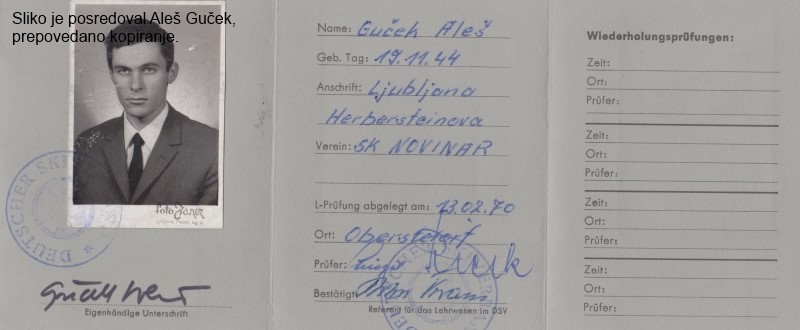 Sliko je posredoval Aleš Guček,
prepovedano kopiranje.
DEUTSCHER SKI
Foto Janez
Eigenhändige Unterschrift
Name: Guček Aleš
Geb. Tag: 19.11.44
Anschrift: Ljubljana
Herbersteinova
Verein: SK NOVINAR
L-Prüfung abgelegt am: 13.02.70
Ort: Oberstdorf
Prüfer:
Bestätigt:
Referent für das Lehrwesen im DSV
Wiederholungsprüfungen:
Zeit:
Ort:
Prüfer:
Zeit:
Ort:
Prüfer:
Zeit:
Ort:
Prüfer:
Zeit:
Ort:
Prüfer: